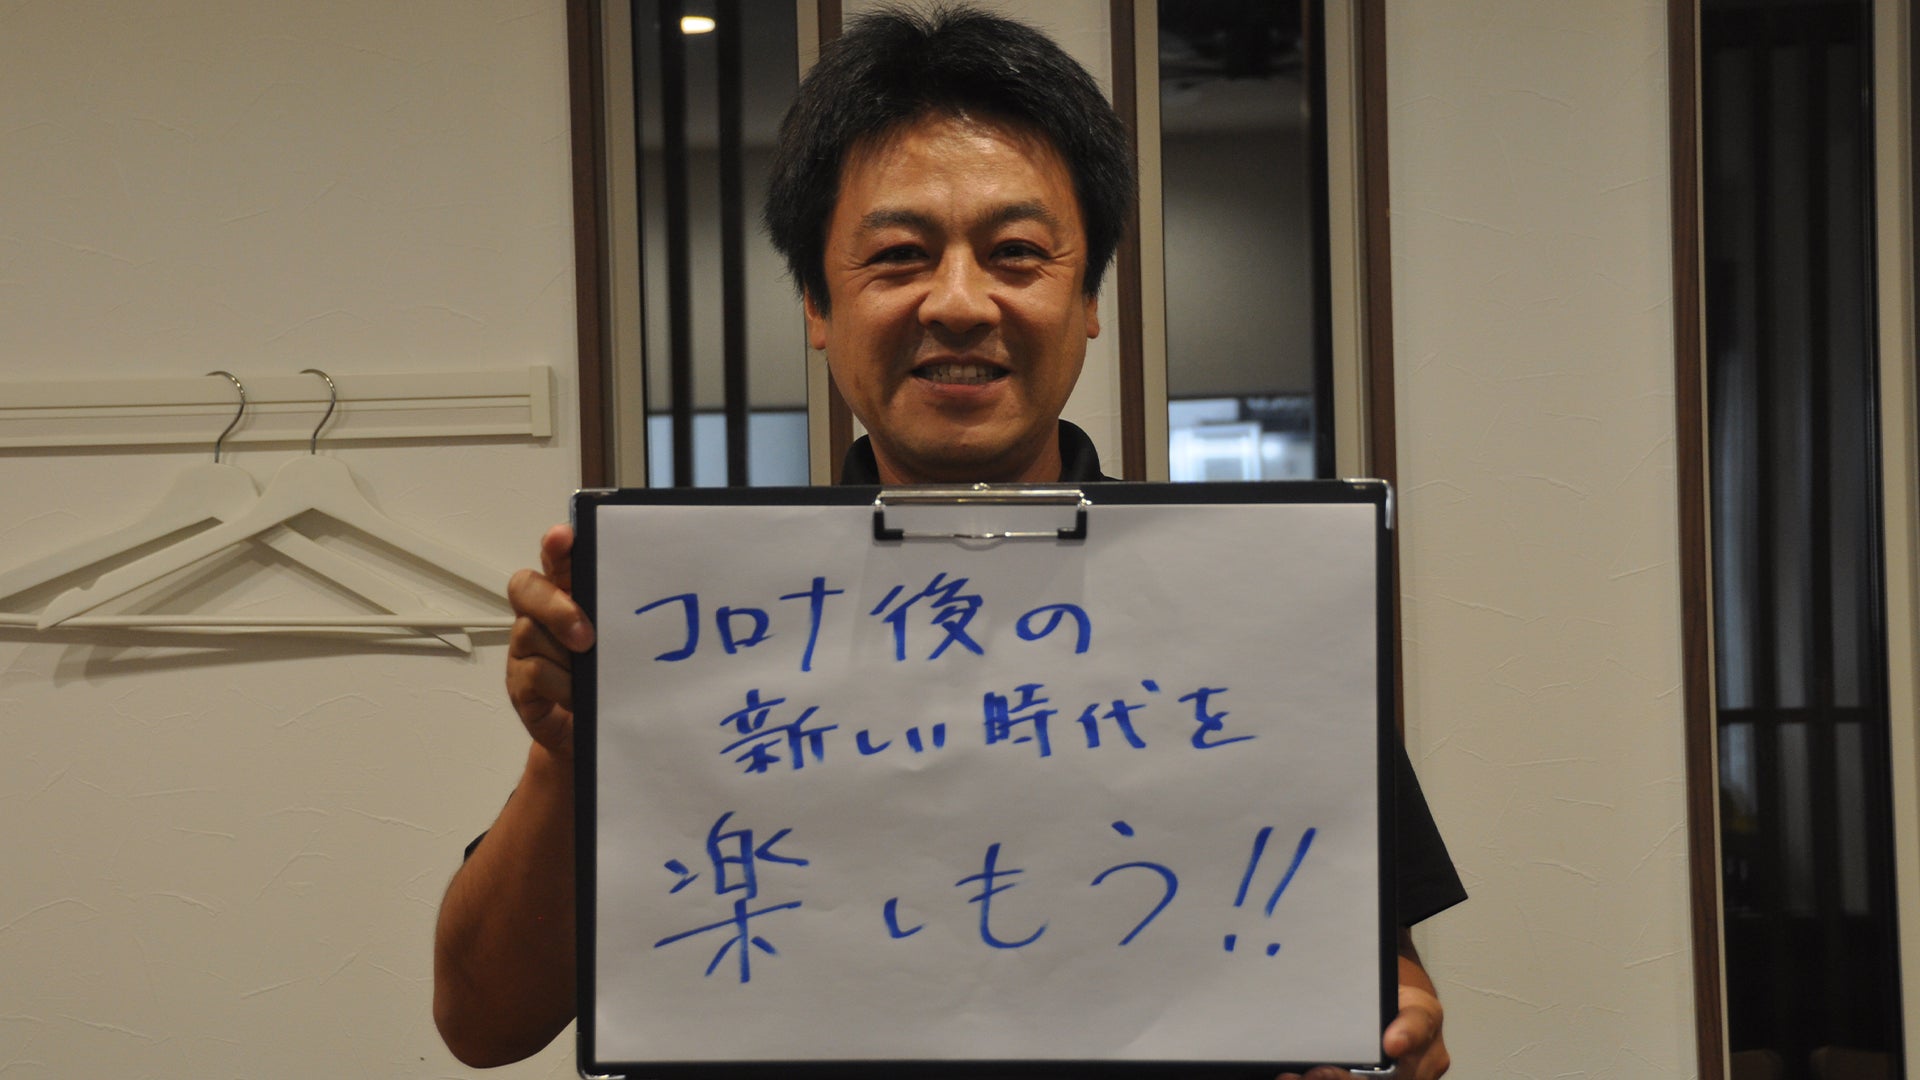 コロナ後の
新しい時代を
楽しもう!!